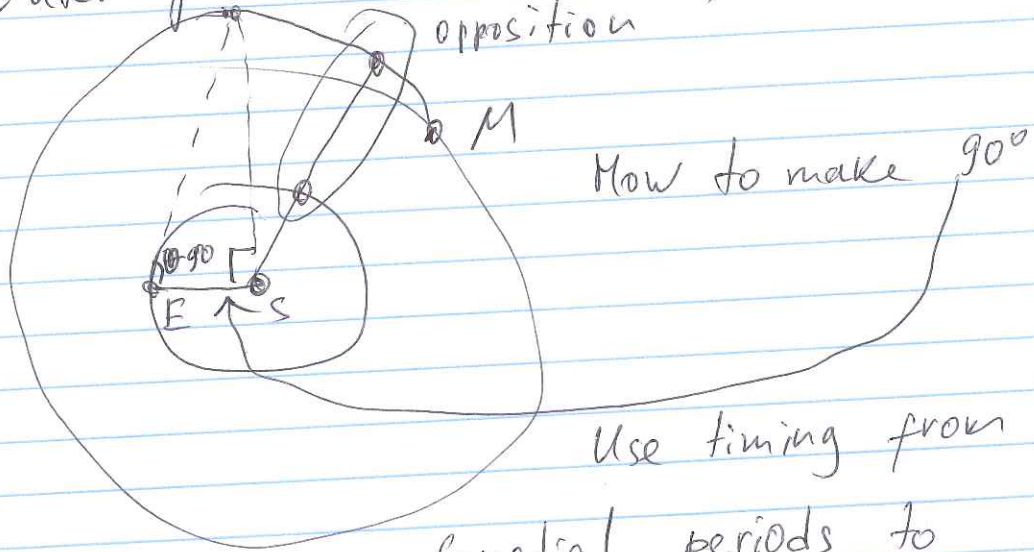 opposition
M
How to make 90°
θ-90
E S
Use timing from
periods to